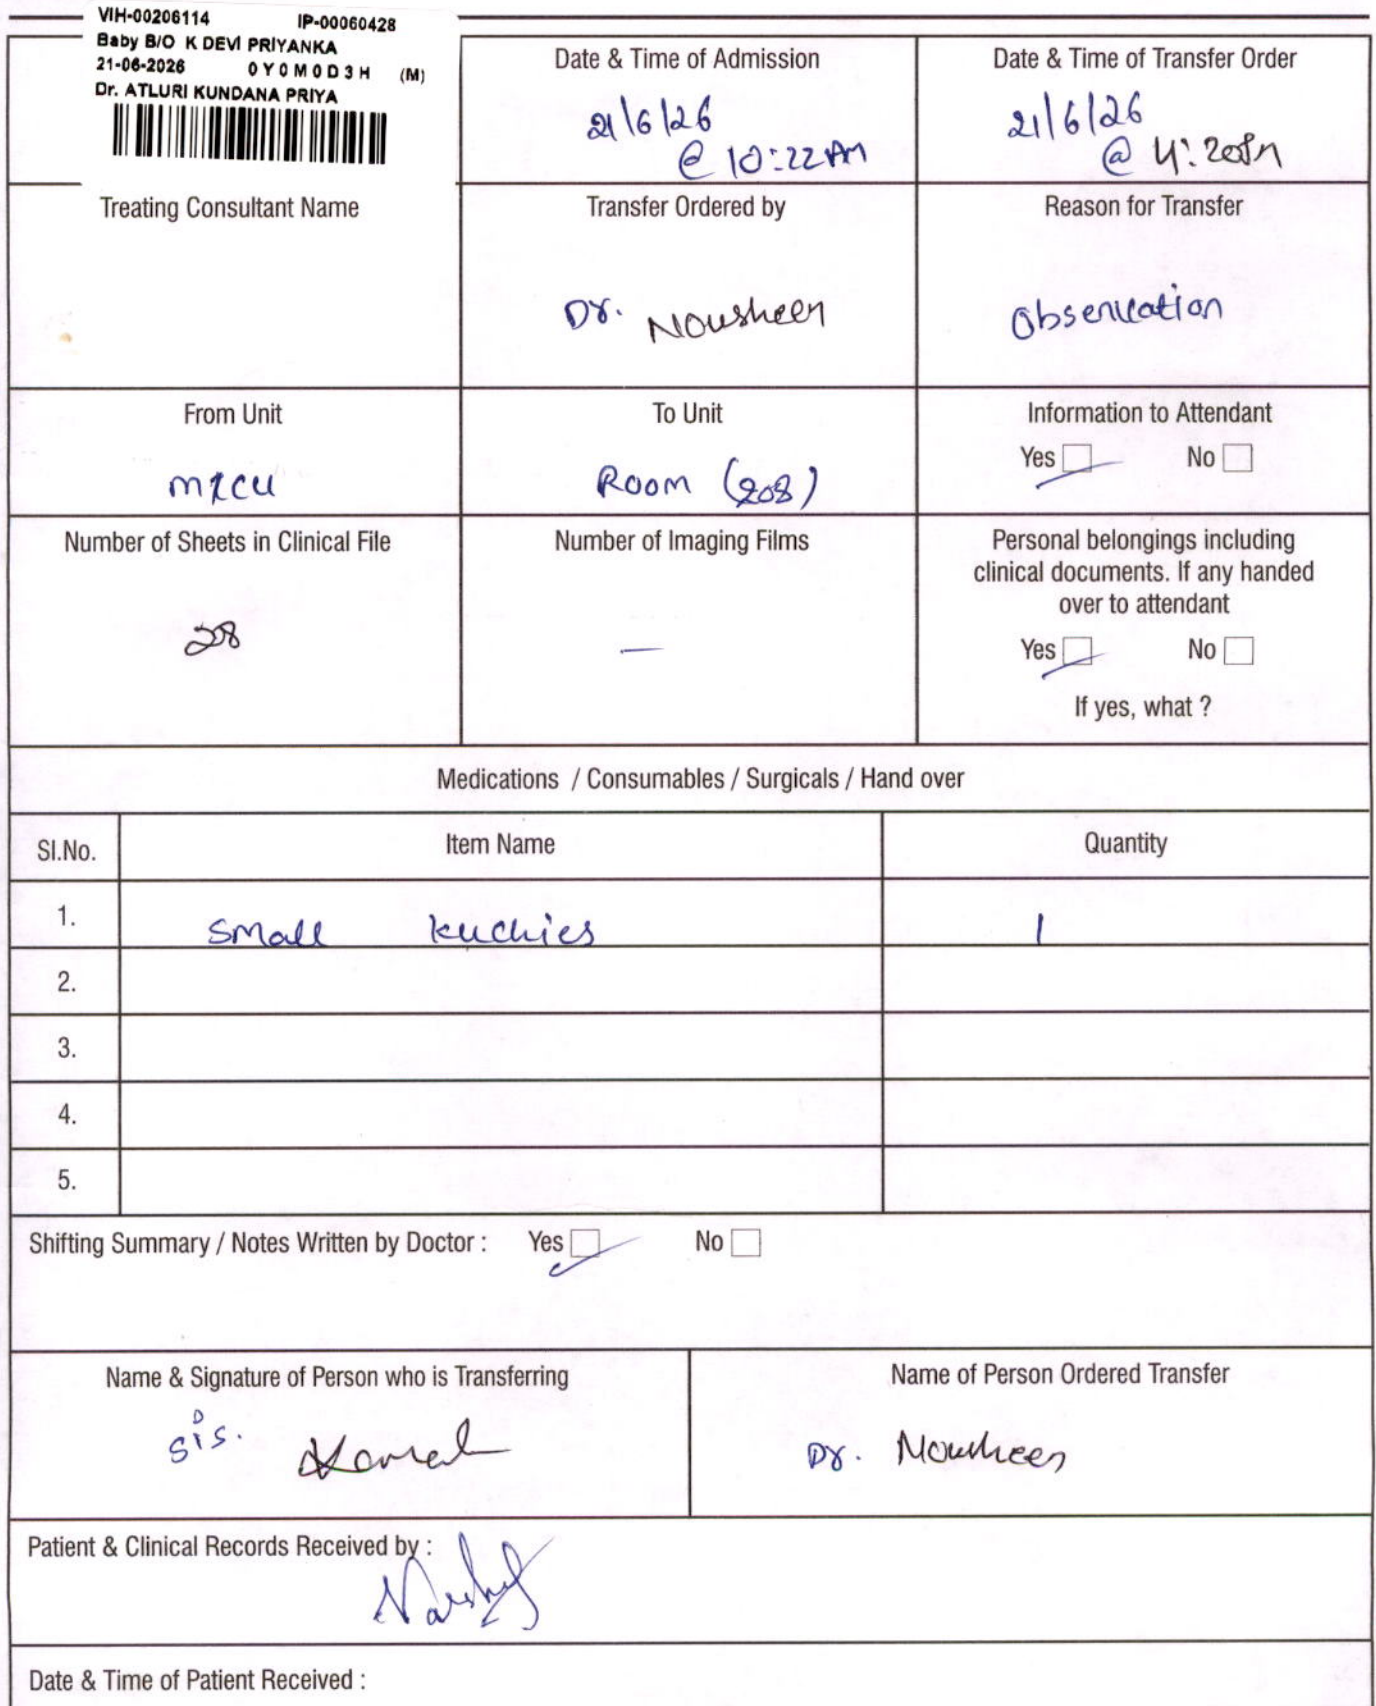 VIH-00206114 IP-00060428
Baby B/O K DEVI PRIYANKA
21-06-2026 0Y0M0D3H (M)
Dr. ATLURI KUNDANA PRIYA
Date & Time of Admission
21/6/26
@ 10:22AM
Date & Time of Transfer Order
21/6/26
@ 4:20PM
Treating Consultant Name
Transfer Ordered by
Dr. Nousheen
Reason for Transfer
Observation
From Unit
MICU
To Unit
Room (208)
Information to Attendant
Yes No
Number of Sheets in Clinical File
28
Number of Imaging Films
—
Personal belongings including
clinical documents. If any handed
over to attendant
Yes No
If yes, what ?
Medications / Consumables / Surgicals / Hand over
Sl.No. Item Name Quantity
1. Small kuchies 1
2.
3.
4.
5.
Shifting Summary / Notes Written by Doctor : Yes No
Name & Signature of Person who is Transferring
Sis.
Name of Person Ordered Transfer
Dr. Nousheen
Patient & Clinical Records Received by :
Date & Time of Patient Received :